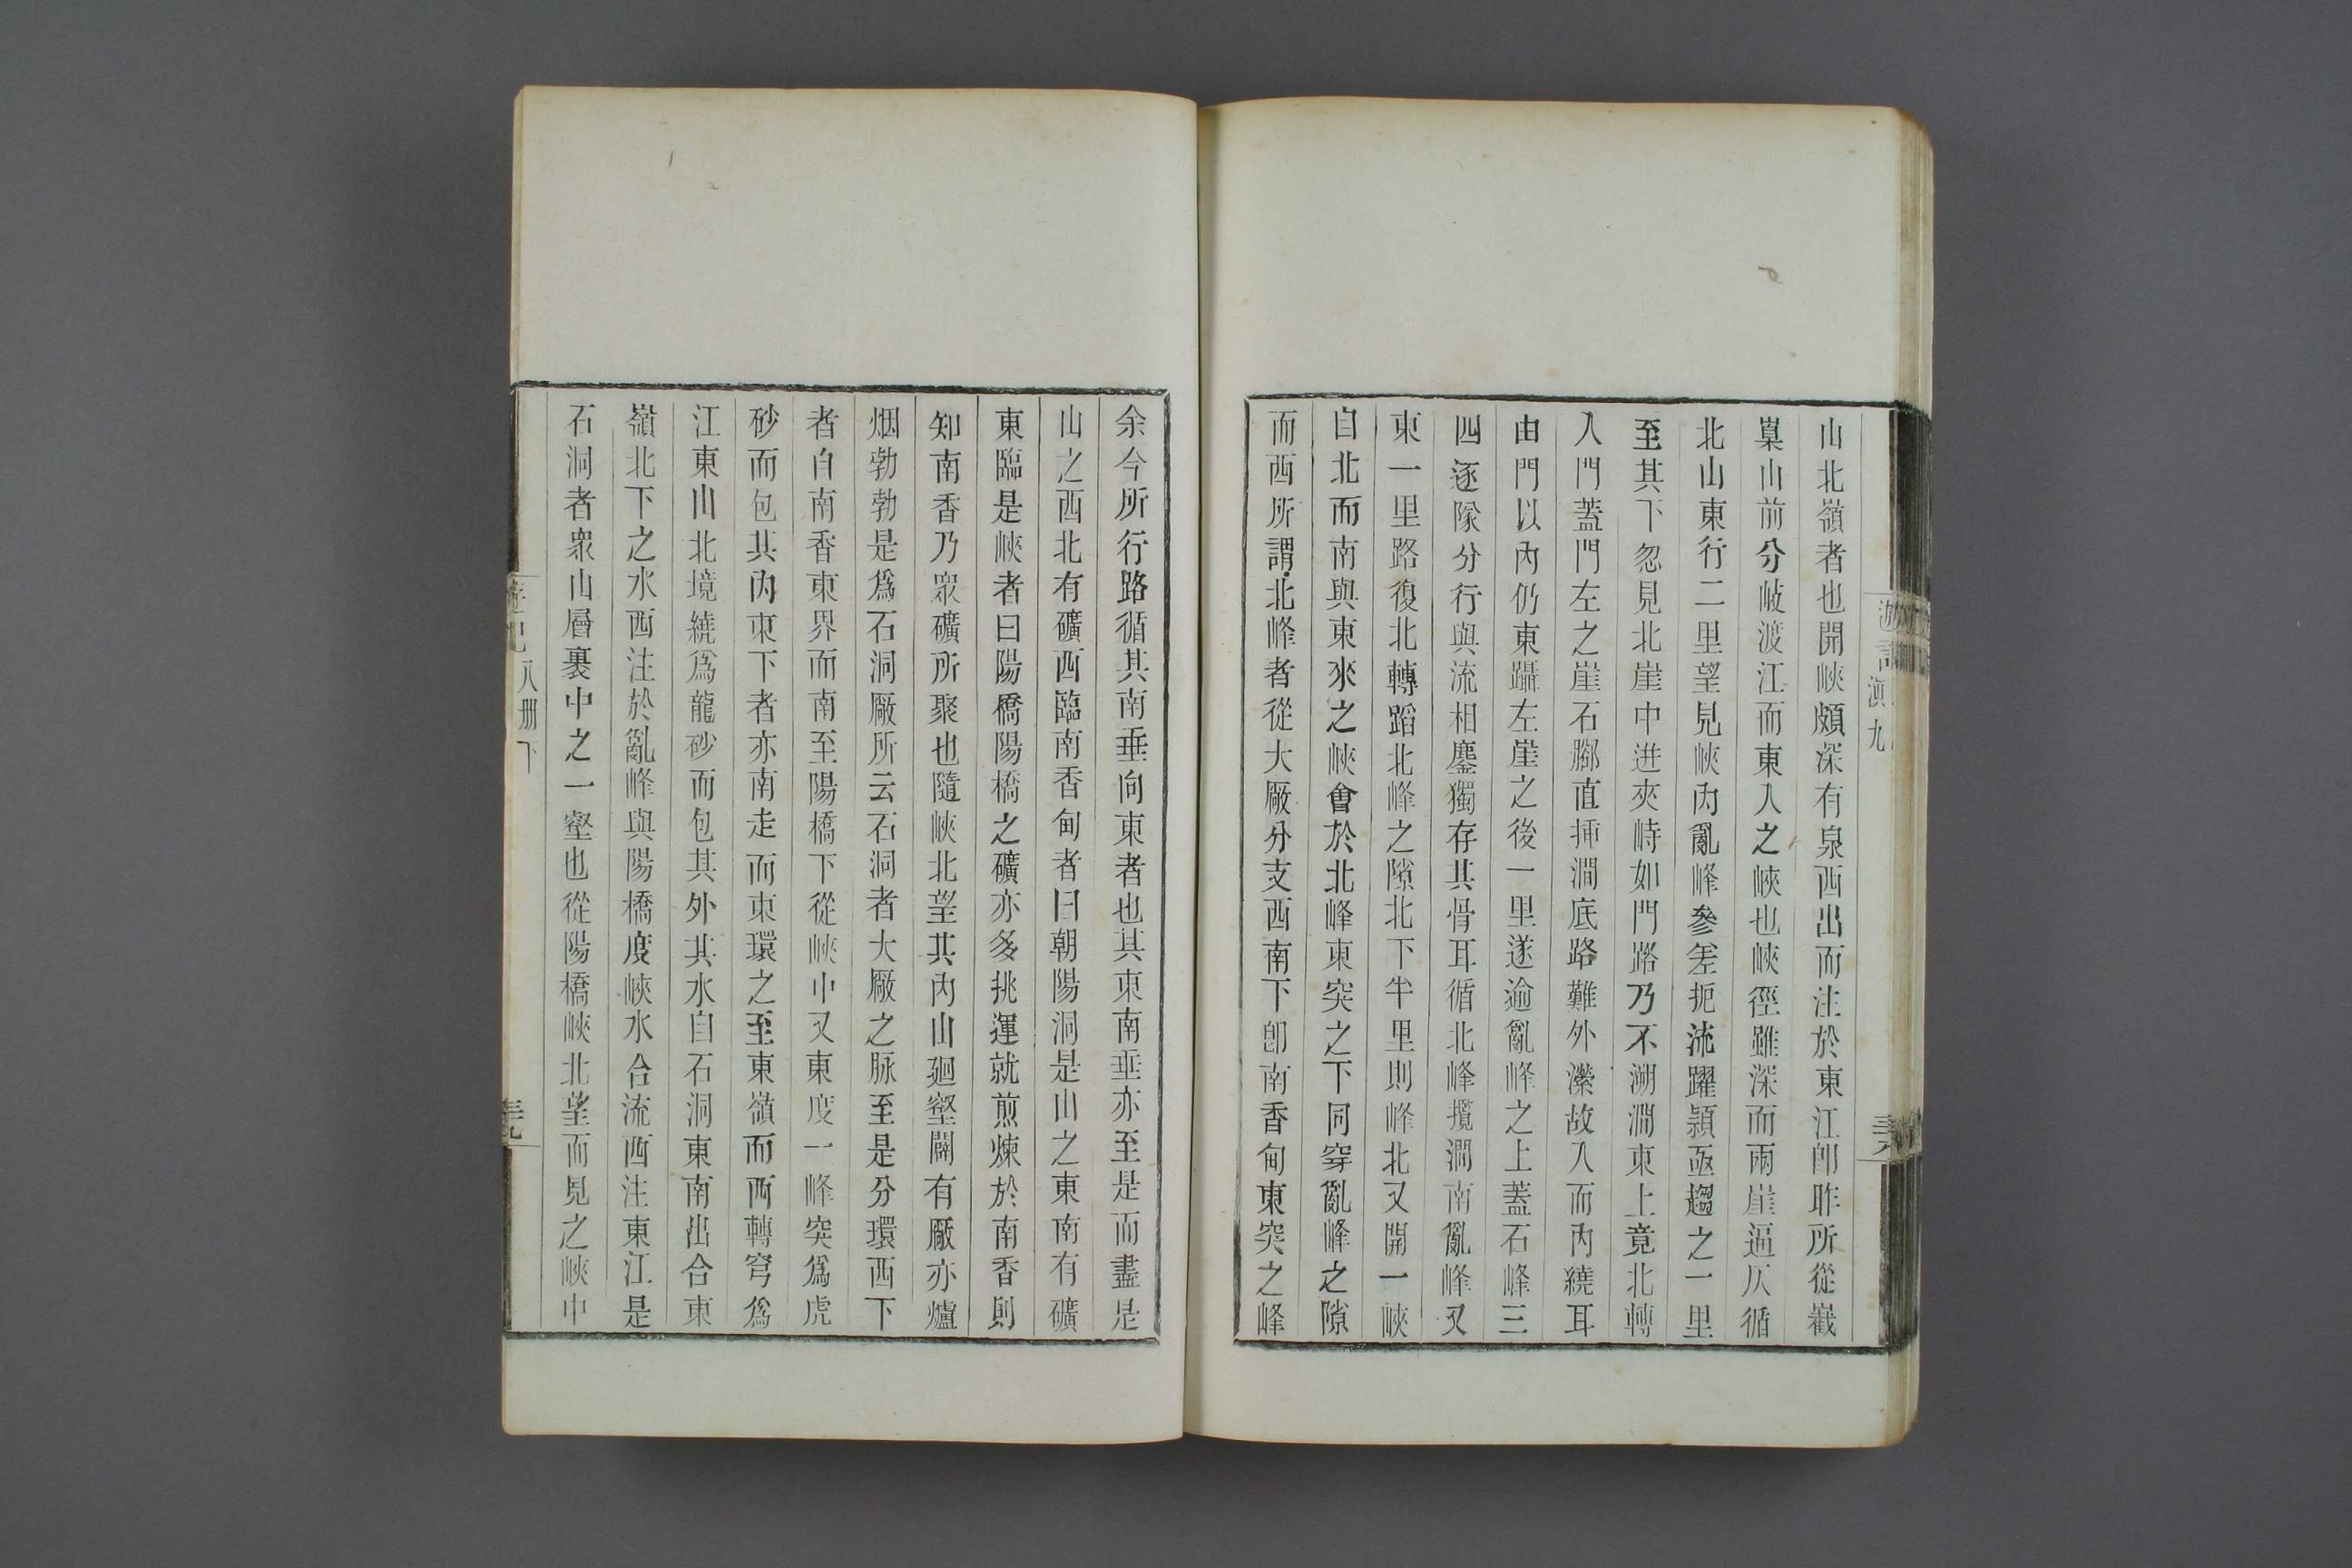 遊記
滇九
三八
山北嶺者也開峽頗深有泉西出而注於東江卽昨所從嶻
嶪山前分岐渡江而東入之峽也峽徑雖深而兩崖逼仄循
北山東行二里望見峽內亂峰參差扼流躍潁亟趨之一里
至其下忽見北崖中迸夾峙如門路乃不溯澗東上竟北轉
入門蓋門左之崖石腳直揷澗底路難外瀠故入而內繞耳
由門以內仍東躡左崖之後一里遂逾亂峰之上蓋石峰三
四逐隊分行與流相鏖獨存其骨耳循北峰攬澗南亂峰又
東一里路復北轉蹈北峰之隙北下半里則峰北又開一峽
自北而南與東來之峽會於北峰東突之下同穿亂峰之隙
而西所謂北峰者從大廠分支西南下卽南香甸東突之峰
余今所行路循其南垂向東者也其東南垂亦至是而盡是
山之西北有礦西臨南香甸者曰朝陽洞是山之東南有礦
東臨是峽者曰陽橋陽橋之礦亦多挑運就煎煉於南香則
知南香乃眾礦所聚也隨峽北望其內山廻壑闢有廠亦爐
烟勃勃是爲石洞廠所云石洞者大廠之脉至是分環西下
者自南香東界而南至陽橋下從峽中又東度一峰突爲虎
砂而包其內東下者亦南走而東環之至東嶺而西轉穹爲
江東山北境繞爲龍砂而包其外其水自石洞東南出合東
嶺北下之水西注於亂峰與陽橋度峽水合流西注東江是
石洞者眾山層裹中之一壑也從陽橋峽北望而見之峽中
遊記
八册下
三九